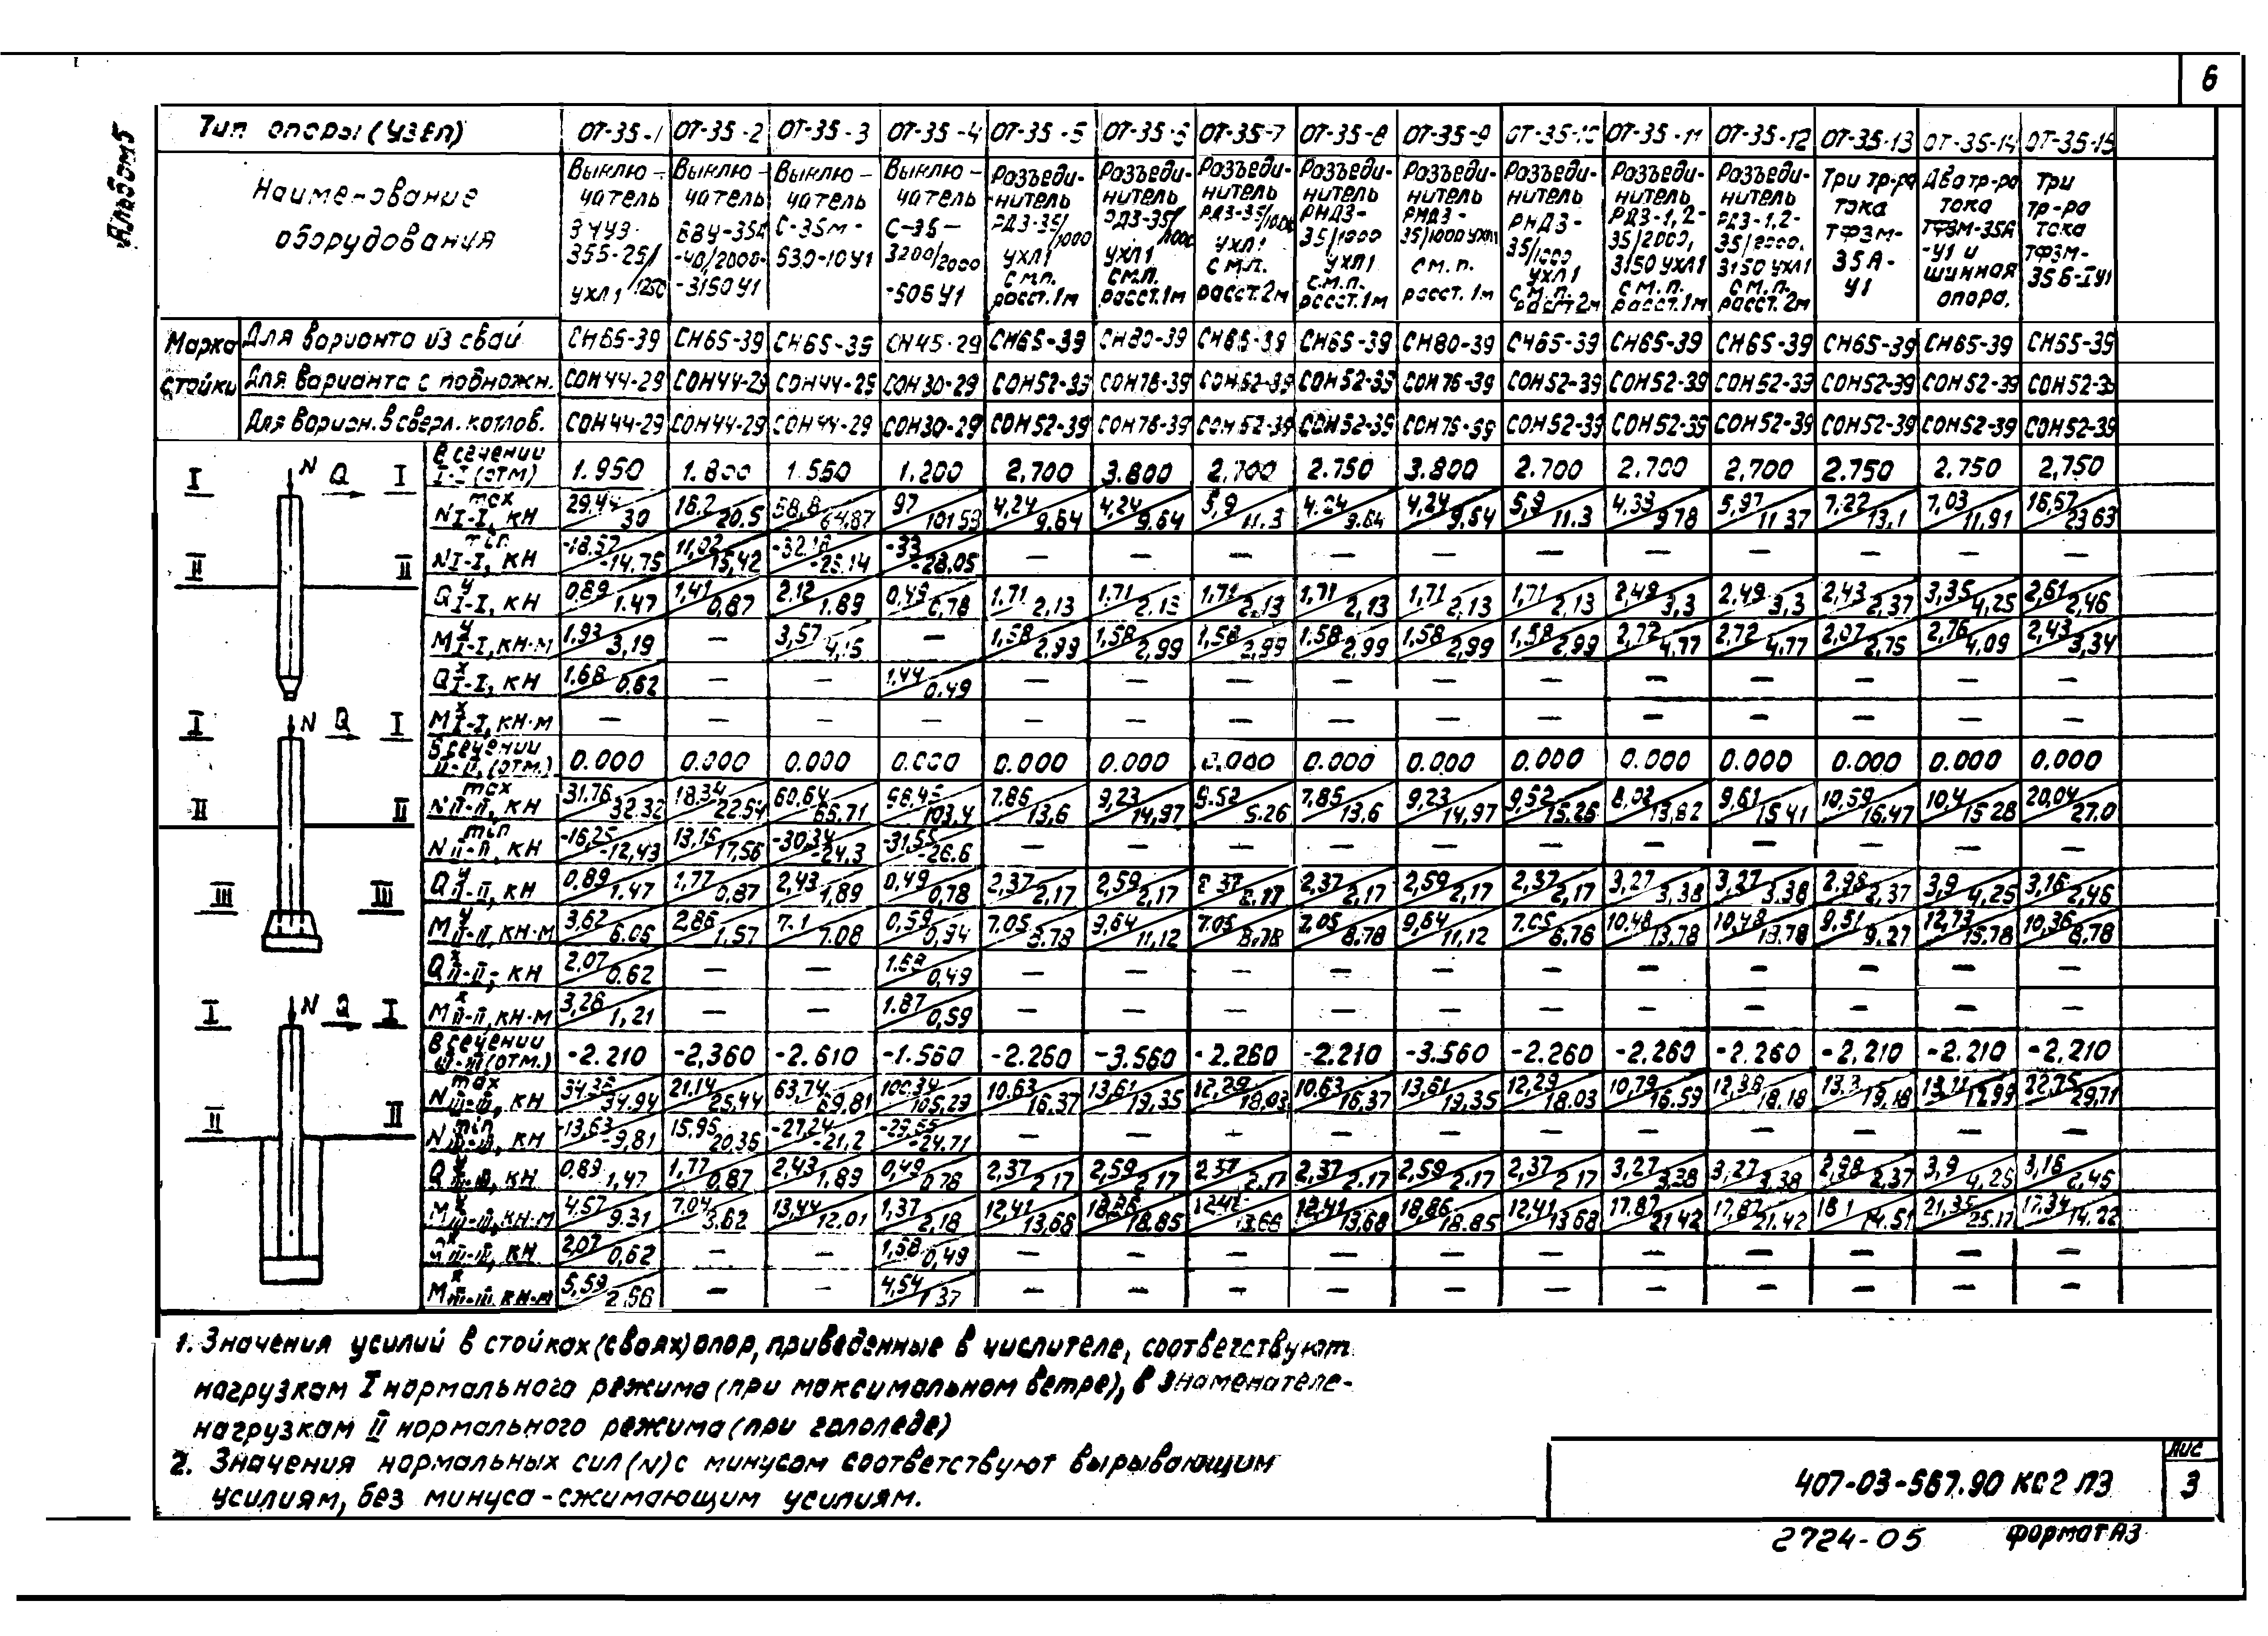 6
Альбом 5
Тип опоры (узел) ОТ-35-1 ОТ-35-2 ОТ-35-3 ОТ-35-4 ОТ-35-5 ОТ-35-6 ОТ-35-7 ОТ-35-8 ОТ-35-9 ОТ-35-10 ОТ-35-11 ОТ-35-12 ОТ-35-13 ОТ-35-14 ОТ-35-15
Наименование
оборудования
Выклю-
чатель
355-25/
1250
УХЛ1
Выклю-
чатель
ВВУ-35А
-40/2000-
-3150У1
Выклю-
чатель
С-35м-
630-10У1
Выклю-
чатель
С-35-
3200/2000
-50БУ1
Разъеди-
нитель
РДЗ-35/
1000
УХЛ1
см.п.
расст.1м
Разъеди-
нитель
РДЗ-35/
1000
УХЛ1
см.п.
расст.1м
Разъеди-
нитель
РДЗ-35/1000
УХЛ1
см.п.
расст.2м
Разъеди-
нитель
РНДЗ-
35/1000
УХЛ1
с.м.п.
расст.1м
Разъеди-
нитель
РНДЗ-
35/1000 УХЛ1
см.п.
расст.1м
Разъеди-
нитель
РНДЗ-
35/1000
УХЛ1
с.м.п.
расст.2м
Разъеди-
нитель
РДЗ-1,2-
35/2000,
3150УХЛ1
см.п.
расст.1м
Разъеди-
нитель
РДЗ-1,2-
35/2000,
3150УХЛ1
см.п.
расст.2м
Три тр-ра
тока
ТФЗМ-
35А-
У1
Два тр-ра
тока
ТФЗМ-35А
-У1 и
шинная
опора.
Три
тр-ра
тока
ТФЗМ-
35Б-IУ1
Марка
стойки
Для варианта из свай СН65-39 СН65-39 СН65-39 СН45-29 СН65-39 СН80-39 СН65-39 СН65-39 СН80-39 СН65-39 СН65-39 СН65-39 СН65-39 СН65-39 СН65-39
Для варианта с подножн. СОН44-29 СОН44-29 СОН44-29 СОН30-29 СОН52-39 СОН76-39 СОН52-39 СОН52-39 СОН76-39 СОН52-39 СОН52-39 СОН52-39 СОН52-39 СОН52-39 СОН52-39
Для вариан. в сверл. котлов. СОН44-29 СОН44-29 СОН44-29 СОН30-29 СОН52-39 СОН76-39 СОН52-39 СОН52-39 СОН76-39 СОН52-39 СОН52-39 СОН52-39 СОН52-39 СОН52-39 СОН52-39
I N Q I
II II
I N Q I
II II
III III
I N Q I
II II
В сечении I-I (отм) 1.950 1.800 1.550 1.200 2.700 3.800 2.700 2.750 3.800 2.700 2.700 2.700 2.750 2.750 2.750
N max I-I, кН 29,44/30 16.2/20.5 58,8/64,87 97/101.53 4,24/9.64 4,24/9.64 5,9/11.3 4.24/9.64 4,24/9.64 5,9/11.3 4.33/9.78 5,97/11.37 7,22/13.1 7,03/11,91 16,67/23.63
N min I-I, кН -18.57/-14.75 11,02/15,42 -32.18/-26.14 -33/-28.05 — — — — — — — — — — —
Q у I-I, кН 0.89/1.47 1,41/0,87 2.12/1.89 0,49/0,78 1.71/2.13 1.71/2.13 1.71/2.13 1,71/2,13 1,71/2.13 1,71/2,13 2,49/3,3 2.49/3.3 2,43/2,37 3,35/4,25 2,61/2,46
M у I-I, кН·м 1.93/3,19 — 3,57/4,15 — 1.58/2.99 1.58/2,99 1.58/2,99 1.58/2.99 1.58/2,99 1.58/2,99 2,72/4,77 2.72/4,77 2,07/2,75 2,76/4,09 2,43/3,34
Q х I-I, кН 1.68/0,62 — — 1.44/0.49 — — — — — — — — — — —
M х I-I, кН·м — — — — — — — — — — — — — — —
В сечении II-II, (отм.) 0.000 0.000 0.000 0.000 0.000 0.000 0.000 0.000 0.000 0.000 0.000 0.000 0.000 0.000 0.000
N max II-II, кН 31.76/32.32 18.34/22.54 60.64/66,71 98.45/103,4 7.86/13,6 9,23/14,97 9.52/5.26 7,85/13.6 9,23/14,97 9,52/15.26 8,02/13,82 9,61/15,41 10,59/16,47 10,4/15.28 20,04/27.0
N min II-II, кН -16,25/-12,43 13,16/17,56 -30,34/-24.3 -31.55/-26.6 — — — — — — — — — — —
Q у II-II, кН 0.89/1.47 1,77/0,87 2,43/1,89 0,49/0,78 2,37/2,17 2,59/2,17 2.37/2.17 2,37/2,17 2,59/2,17 2,37/2,17 3,27/3,38 3,27/3,38 2,98/2,37 3,9/4,25 3,16/2,46
M у II-II, кН·м 3,62/6.05 2,86/1,57 7.1/7.08 0,59/0,94 7.05/8.78 9,64/11,12 7.05/8.78 7.05/8.78 9,64/11,12 7.05/8.78 10,48/13,78 10,48/13,78 9,51/9.27 12,73/15.78 10,36/8.78
Q х II-II, кН 2,07/0.62 — — 1.68/0,49 — — — — — — — — — — —
M х II-II, кН·м 3,26/1,21 — — 1.87/0,59 — — — — — — — — — — —
В сечении III-III (отм.) -2.210 -2,360 -2.610 -1.560 -2.260 -3.560 -2.260 -2.210 -3.560 -2.260 -2.260 -2.260 -2,210 -2.210 -2,210
N max III-III, кН 34.38/34.94 21.14/25.44 63,74/69,81 100.34/105,29 10,63/16,37 13,61/19,35 12,29/18,03 10,63/16,37 13,61/19,35 12,29/18.03 10,79/16.59 12,38/18.18 22,75/29,71
N min III-III, кН -13,63/-9,81 15,96/20.36 -27,24/-21,2 -29,66/-24.71 — — — — — — — — — — —
Q у III-III, кН 0.89/1,47 1,77/0,87 2,43/1.89 0,49/0.78 2,37/2.17 2,59/2.17 2,37/2.17 2,37/2.17 2,59/2.17 2,37/2.17 3,27/3.38 3,27/3.38 2,98/2,37 3,9/4,25 3,16/2,46
M у III-III, кН·м 4,57/9.31 7,04/3.62 13,44/12.01 1,37/2,18 12,41/13,68 18,86/18.85 12,41/13.68 12,41/13,68 18,86/18.85 12,41/13.68 17.87/21.42 17,87/21.42 18.1/14.51 21,35/25.17 17,34/14,22
Q х III-III, кН 2,07/0,62 — — 1,68/0,49 — — — — — — — — — — —
M х III-III, кН·м 5,59/2.56 — — 4,54/1.37 — — — — — — — — — — —
1. Значения усилий в стойках (сваях) опор, приведенные в числителе, соответствуют
нагрузкам I нормального режима (при максимальном ветре), в знаменателе-
нагрузкам II нормального режима (при гололеде)
2. Значения нормальных сил (N) с минусом соответствуют вырывающим
усилиям, без минуса - сжимающим усилиям.
407-03-567.90 КС2 ПЗ
Лис
3
2724-05 Формат А3